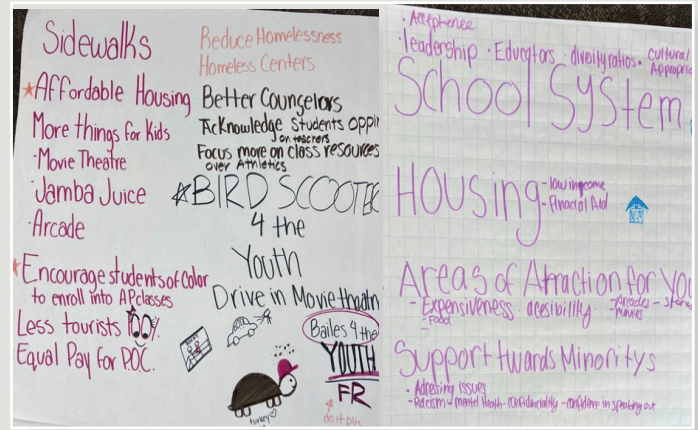 Sidewalks
★Affordable Housing
More things for Kids
·Movie Theatre
·Jamba Juice
·Arcade
★Encourage students of Color
to enroll into AP classes
Less tourists
Equal Pay for P.O.C.
Reduce Homelessness
Homeless Centers
Better Counselors
Acknowledge students oppin
on teachers
Focus more on class resources
over Athletics
☆BIRD SCOOTE
4 the
Youth
Drive in Movie theatr
Bailes 4 the
YOUTH
FR
do it pls
turkey♡
· Acceptence
·leadership · Educators - diveityratios · Cultural
Appropria
School System
Housing
- low income
- Finacial Aid
NEW
Areas of Attraction for You
- Expensiveness - acesibility - Arcades - stores
- Food
- movies
Support twards Minoritys
· Adressing issues
- Racism - mental Health - confidenciality - confidence in speaking out